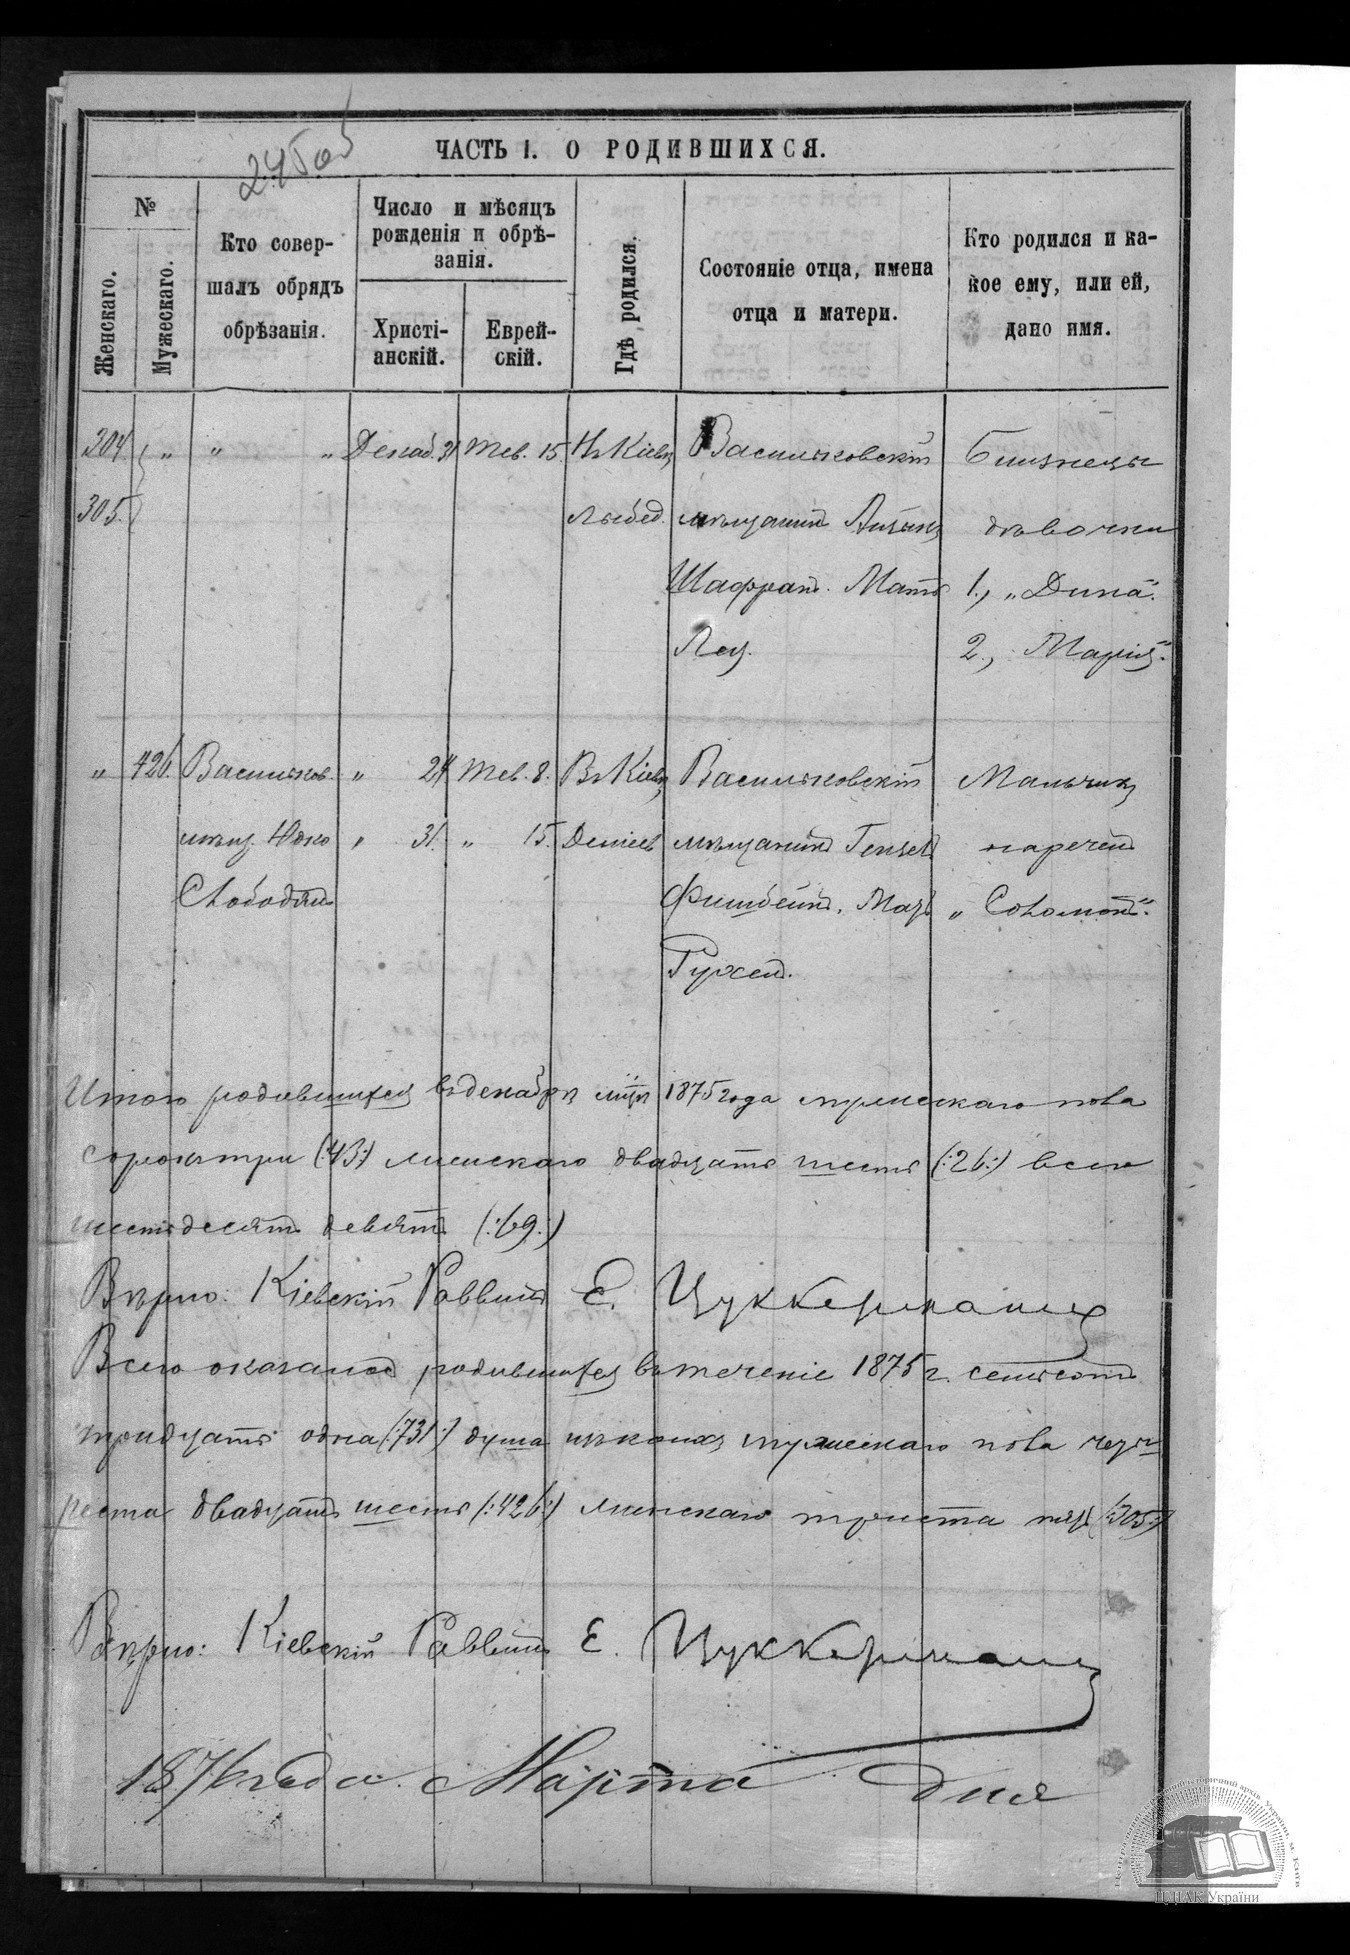 ЧАСТЬ I. О РОДИВШИХСЯ.
№
Женскаго.
Мужескаго.
Кто совер-
шалъ обрядъ
обрѣзанія.
Число и мѣсяцъ
рожденія и обрѣ-
занія.
Христі-
анскій.
Еврей-
скій.
Гдѣ родился.
Состояніе отца, имена
отца и матери.
Кто родился и ка-
кое ему, или ей,
дано имя.
304 " " " Декаб. 31 Тев. 15. Въ Кіевѣ Васильковскій Близнецы
305. Лыбед. мѣщанинъ дѣвочки
Шафранъ. Мать 1., „Дина".
Лея. 2., Марія".
" 426. Васильков. " 24 Тев. 8. Въ Кіевѣ Васильковскій Мальчикъ
мѣщ. Юдко " 31. " 15. Деміев. мѣщанинъ нареченъ
Свободянъ Фишбейнъ. Мать „Соломонъ".
Рухель.
Итого родившихся въ декабрѣ мцѣ 1875 года мужескаго пола
сорокъ три (:43:) женскаго двадцать шесть (:26:) всего
шестьдесятъ девять (:69:)
Вѣрно: Кіевскій Раввинъ Е. Цуккерманъ
Всего оказалось родившихся въ теченіе 1875 г. семьсотъ
тридцать одна (:731:) душа изъ коихъ мужескаго пола четы-
реста двадцать шесть (:426:) женскаго триста пять (:305:)
Вѣрно: Кіевскій Раввинъ Е. Цуккерманъ
1876 года Марта дня
ЦДІАК України